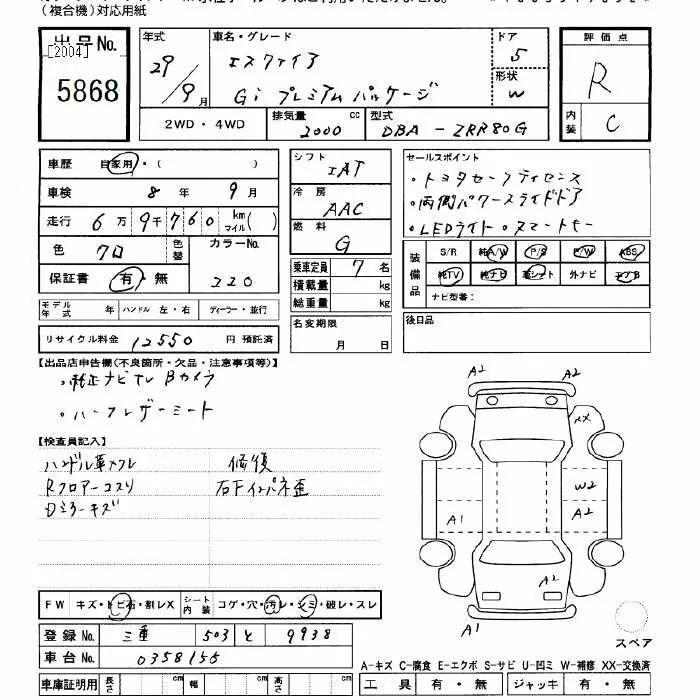 （複合機）対応用紙
出品No. [2004] 5868
年式 29/9月
車名・グレード エスクァイア Gi プレミアムパッケージ
ドア 5
形状 W
評価点 R
内装 C
2WD・4WD
排気量 2000 cc
型式 DBA－ZRR80G
車歴 自家用・( )
車検 8年 9月
走行 6万9千760 km マイル( )
色 クロ 色替 カラーNo. 220
保証書 有・無
モデル年式 年 ハンドル 左・右 ディーラー・並行
リサイクル料金 12550 円 預託済
シフト IAT
冷房 AAC
燃料 G
乗車定員 7名
積載量 kg
総重量 kg
名変期限 月 日
セールスポイント
・トヨタセーフティセンス
・両側パワースライドドア
・LEDライト・スマートキー
装備品 S/R 純A/W P/S P/W ABS
純TV 純ナビ 革シート 外ナビ エアB
ナビ型番：
後日品
【出品店申告欄(不良箇所・欠品・注意事項等)】
・純正ナビTV Bカメラ
・ハーフレザーシート
【検査員記入】
ハンドル革メクレ 修復
Rフロアーコスリ 右Fインパネ歪
Dミラーキズ
A2
A2
XX
W2
A2
A1
A2
A1
スペア
FW キズ・トビ石・割レX シート内装 コゲ・穴・汚レ・シミ・破レ・スレ
登録No. 三重 503 と 9938
車台No. 0358155
A－キズ C－腐食 E－エクボ S－サビ U－凹ミ W－補修 XX－交換済
車庫証明用 長さ cm 幅 cm 高さ cm
工具 有・無 ジャッキ 有・無